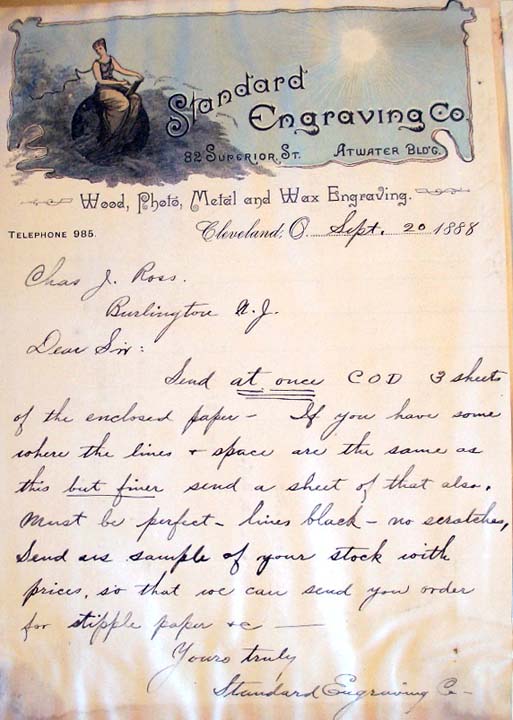 Standard
Engraving Co.
82 Superior. St. Atwater Bld'g.
Wood, Photo, Metal and Wax Engraving.
Telephone 985.
Cleveland, O. Sept. 20 1888
Chas J. Ross.
Burlington N. J.
Dear Sir:
Send at once COD 3 sheets
of the enclosed paper - If you have some
where the lines + space are the same as
this but finer send a sheet of that also.
Must be perfect - lines black - no scratches,
Send us sample of your stock with
prices, so that we can send you order
for stipple paper &c —
Yours truly
Standard Engraving Co -